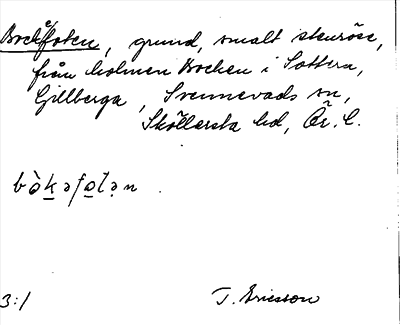 Bockfoten, grund, smalt stenröse,
från holmen Bocken i Sottern,
Gillberga, Svennevads sn,
Sköllersta hd, Ör. l.
bò̀k̲əfo̲lən.
3:1 T. Ericsson